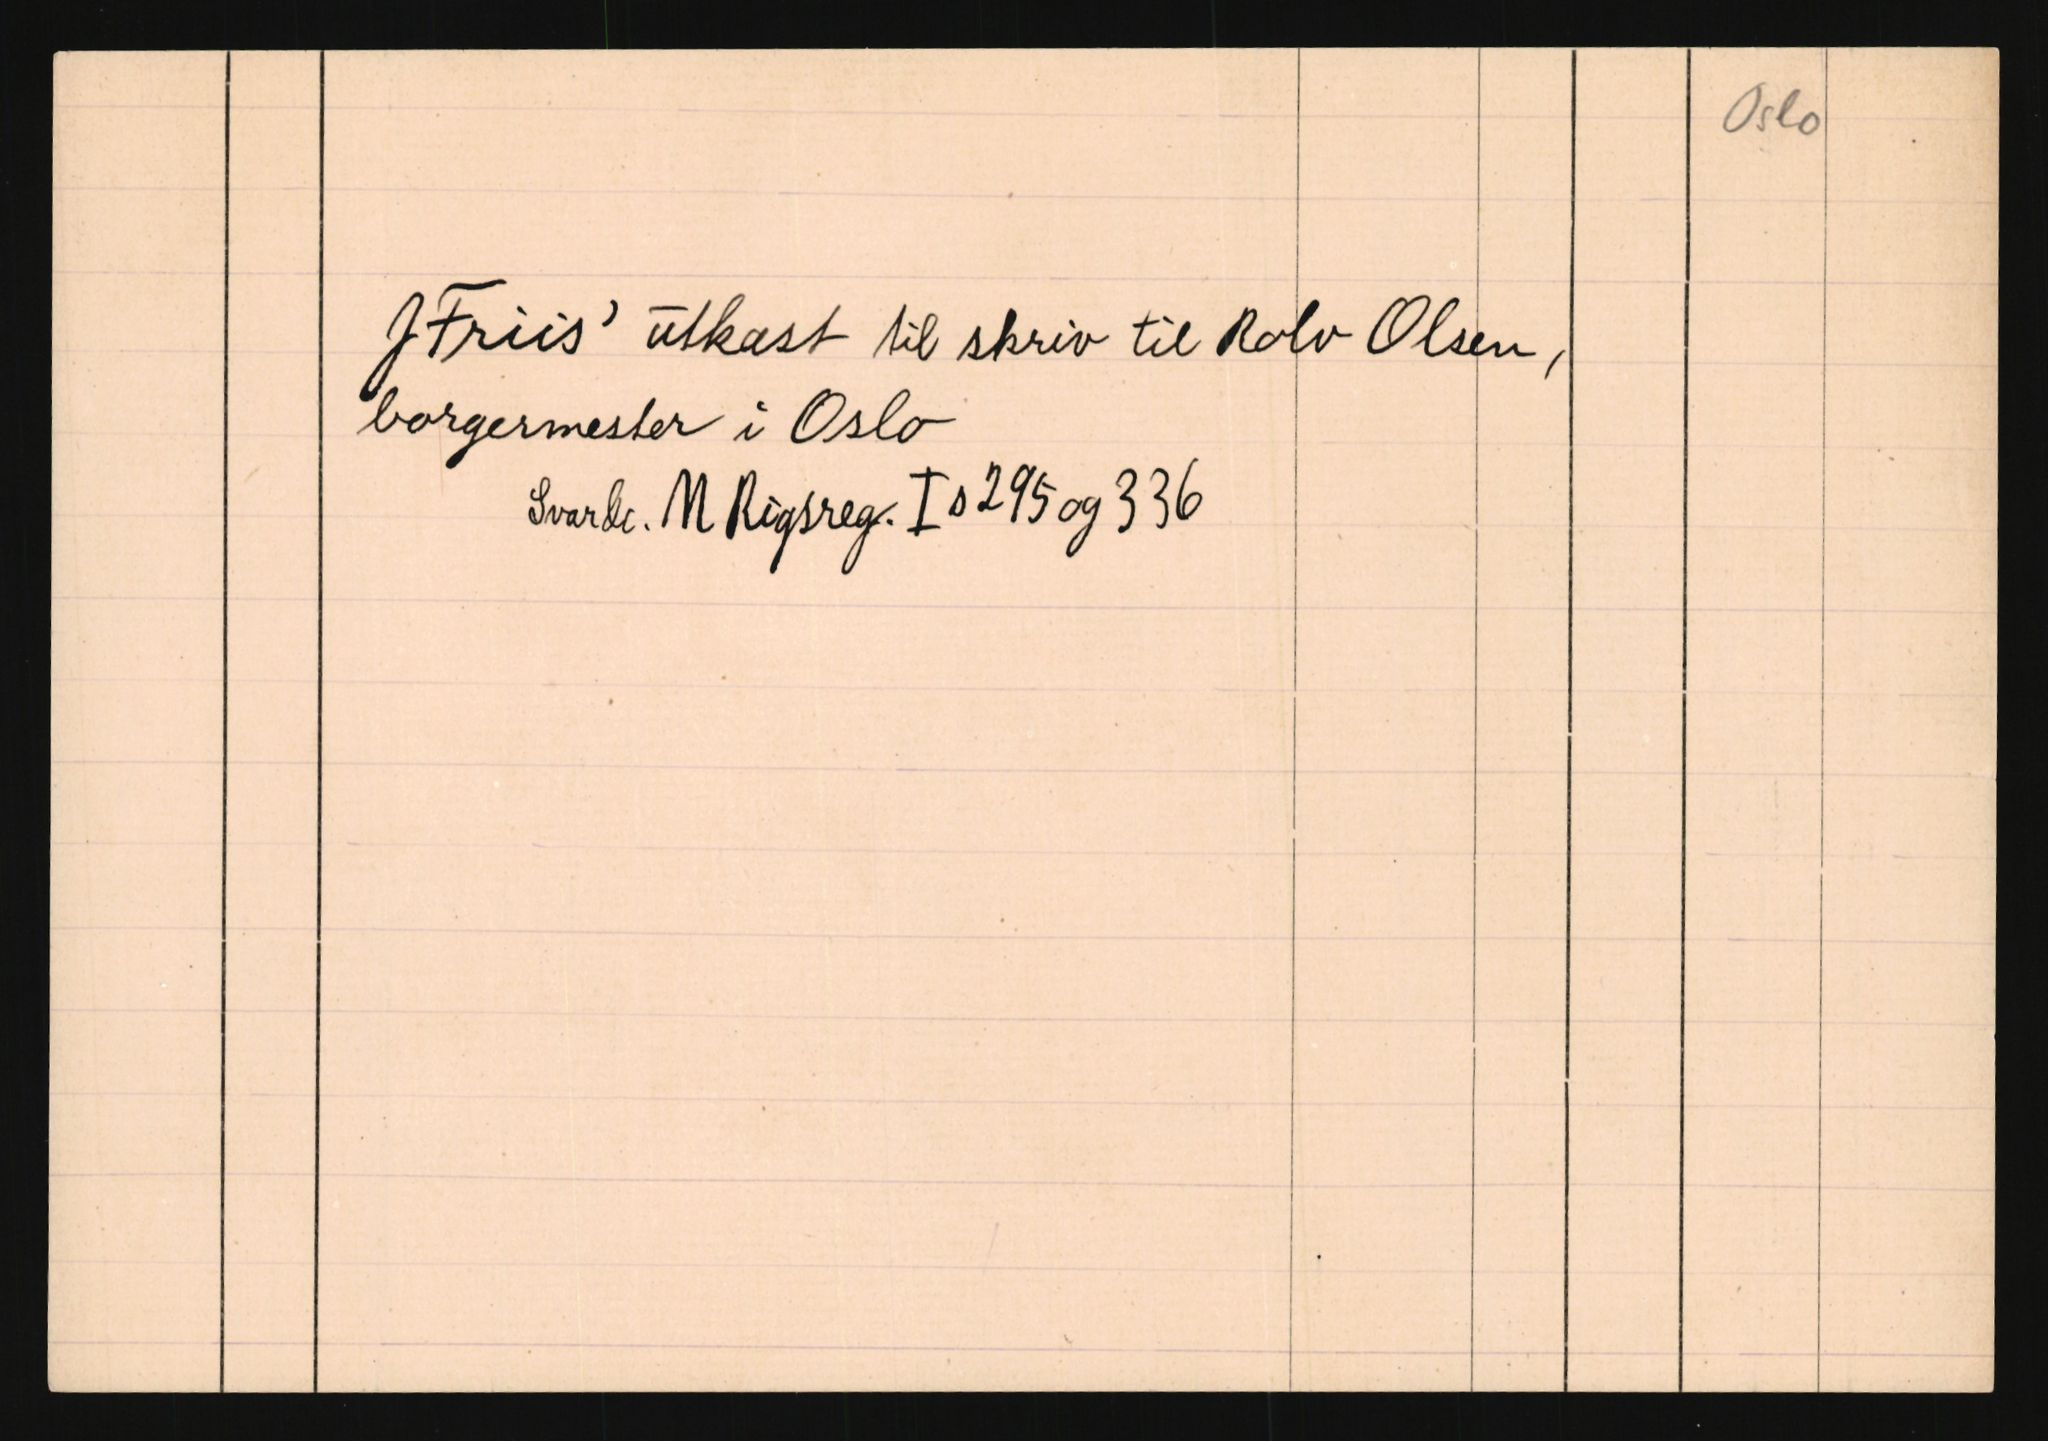 Oslo
J Friis' ūtkast til skriv til Rolv Olsen,
borgermester i Oslo
N Rigsreg. I s 295 og 336